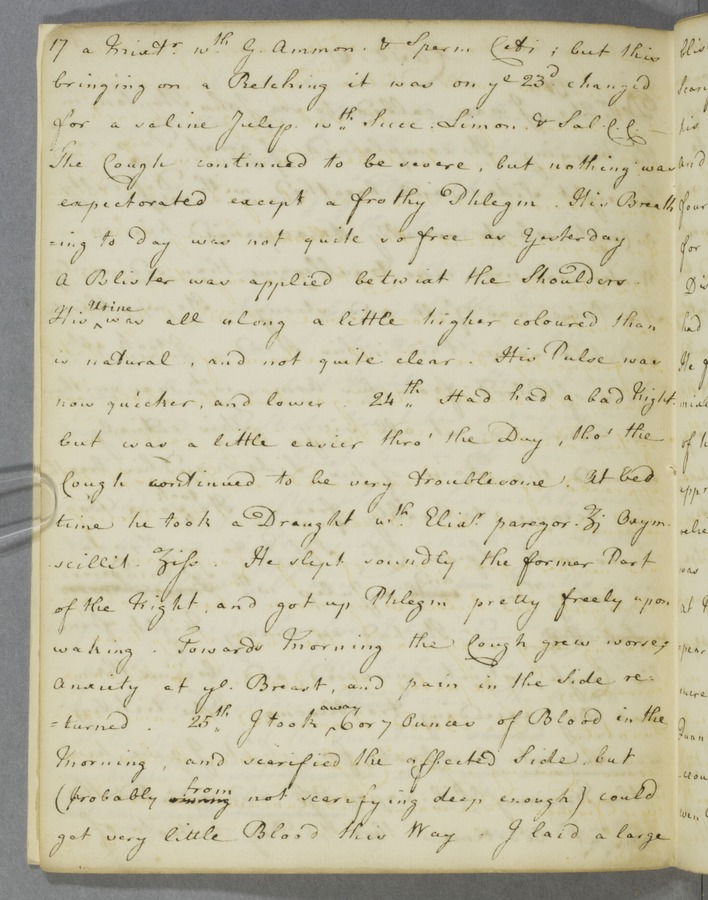 17 a Mixtr. wth G. Ammon. & Sperm Ceti ; but this
bringing on a Retching it was on ye 23d changed
for a saline Julep. wth Succ. Limon. & Sal. C.C. —
The Cough continued to be severe, but nothing was
expectorated except a frothy Phlegm. His Breath
=ing to Day was not quite so free as Yesterday
A Blister was applied betwixt the Shoulders.
His Urine was all along a little higher coloured than
is natural, and not quite clear. His Pulse was
now quicker, and lower. 24th Had had a bad Night
but was a little easier thro' the Day, tho' the
Cough continued to be very troublesome. At bed
time he took a Draught wth. Elixr. paregor. ʒj Oxym.
scillit. ʒiſs. He slept soundly the former Part
of the Night, and got up Phlegm pretty freely upon
waking. Towards Morning the Cough grew worse;
Anxiety at ye. Breast, and pain in the Side re-
=turned. 25th I took away 6 or 7 Ounces of Blood in the
Morning, and scarified the affected Side, but
(probably from not scarifying deep enough) could
get very little Blood this Way. I laid a large